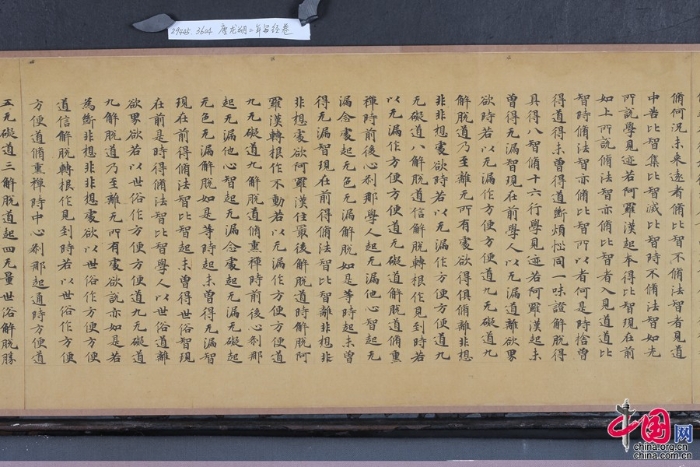 29445 3604 唐龙朔二年写经卷
脩何況未來遠者脩比智不脩法智者見道
中苦比智集比智滅比智時不脩法智如先
所說學見迹若阿羅漢起本得比智現在前
如上所說脩法智亦脩比智者入見道道比
智時脩法智亦脩比智所以者何是時捨曾
得道得未曾得道斷煩惱同一味證解脫得
具得八智脩十六行學見迹若阿羅漢起未
曾得无漏智現在前學人以无漏道離欲界
欲時若以无漏作方便方便道九无礙道九
解脫道乃至離无所有處欲得俱脩離非想
非非想處欲時若以无漏作方便方便道九
无礙道八解脫道信解脫轉根作見到時若
以无漏作方便方便道无礙道解脫道脩熏
禪時前後心刹那學人起无漏他心智起无
漏念處起无色无漏解脫如是等時起未曾
得无漏智現在前得脩法智比智離非想非
非想處欲阿羅漢住最後解脫道時解脫阿
羅漢轉根作不動若以无漏作方便方便道
九无礙道九解脫道脩熏禪時前後心刹那
起无漏他心智起无漏念處起无漏无礙起
无色无漏解脫如是等時起未曾得无漏智
現在前得脩法智比智起未曾得世俗智現
在前是時得脩法智比智學人以世俗道離
欲界欲若以世俗作方便方便道九无礙道
九解脫道乃至離无所有處欲說亦如是若
為斷非想非非想處欲以世俗作方便方便
道信解脫轉根作見到時若以世俗作方便
方便道脩熏禪時中心刹那起通時方便道
五无礙道三解脫道起四无量世俗解脫勝
中国网
china.org.cn
china.com.cn